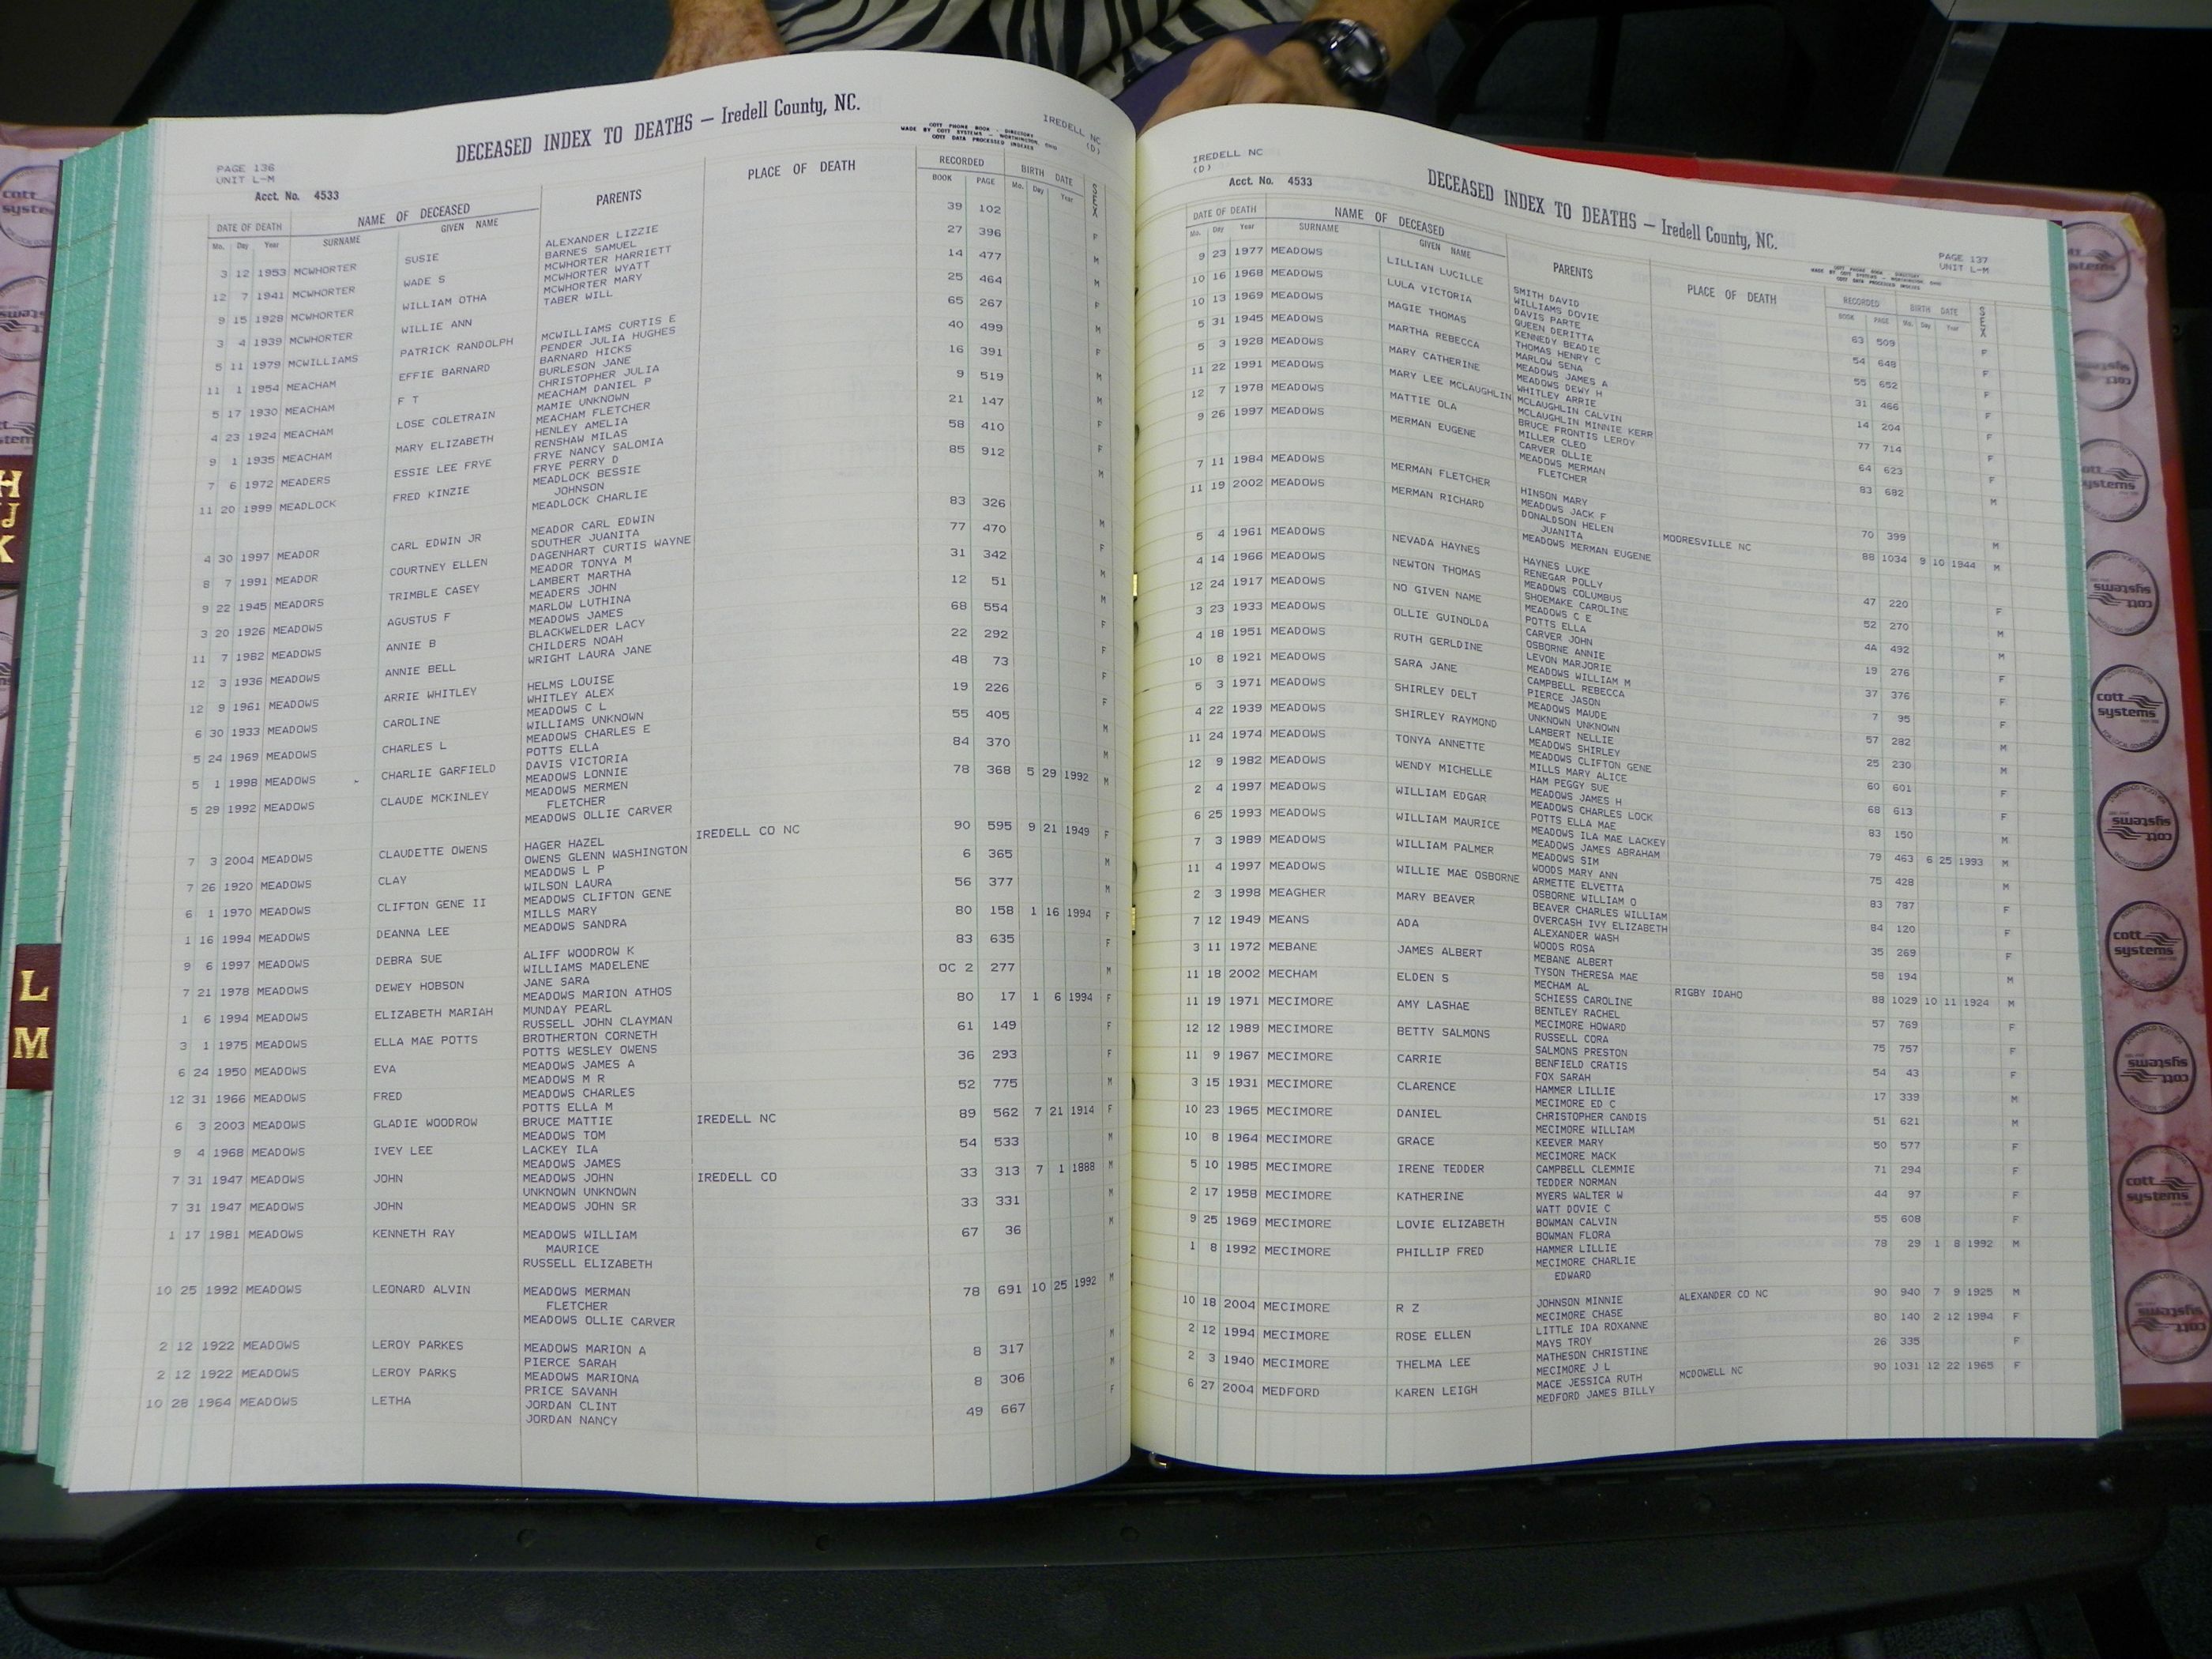 DECEASED INDEX TO DEATHS — Iredell County, NC.
COTT PHONE BOOK - DIRECTORY
MADE BY COTT SYSTEMS - WORTHINGTON, OHIO
COTT DATA PROCESSED INDEXES
IREDELL NC
(D)
PAGE 136
UNIT L-M
Acct. No. 4533
DATE OF DEATH NAME OF DECEASED PARENTS PLACE OF DEATH RECORDED BIRTH DATE SEX
Mo. Day Year SURNAME GIVEN NAME BOOK PAGE Mo. Day Year
3 12 1953 MCWHORTER SUSIE ALEXANDER LIZZIE 39 102 F
BARNES SAMUEL
12 7 1941 MCWHORTER WADE S MCWHORTER HARRIETT 27 396 M
MCWHORTER WYATT
9 15 1928 MCWHORTER WILLIAM OTHA MCWHORTER MARY 14 477 M
TABER WILL
3 4 1939 MCWHORTER WILLIE ANN 25 464 F
5 11 1979 MCWILLIAMS PATRICK RANDOLPH MCWILLIAMS CURTIS E 65 267 M
PENDER JULIA HUGHES
11 1 1954 MEACHAM EFFIE BARNARD BARNARD HICKS 40 499 F
BURLESON JANE
5 17 1930 MEACHAM F T CHRISTOPHER JULIA 16 391 M
MEACHAM DANIEL P
4 23 1924 MEACHAM LOSE COLETRAIN MAMIE UNKNOWN 9 519 M
MEACHAM FLETCHER
9 1 1935 MEACHAM MARY ELIZABETH HENLEY AMELIA 21 147 F
RENSHAW MILAS
7 6 1972 MEADERS ESSIE LEE FRYE FRYE NANCY SALOMIA 58 410 F
FRYE PERRY D
11 20 1999 MEADLOCK FRED KINZIE MEADLOCK BESSIE 85 912 M
JOHNSON
MEADLOCK CHARLIE
4 30 1997 MEADOR CARL EDWIN JR MEADOR CARL EDWIN 83 326 M
SOUTHER JUANITA
8 7 1991 MEADOR COURTNEY ELLEN DAGENHART CURTIS WAYNE 77 470 F
MEADOR TONYA M
9 22 1945 MEADORS TRIMBLE CASEY LAMBERT MARTHA 31 342 M
MEADERS JOHN
3 20 1926 MEADOWS AGUSTUS F MARLOW LUTHINA 12 51 M
MEADOWS JAMES
11 7 1982 MEADOWS ANNIE B BLACKWELDER LACY 68 554 F
CHILDERS NOAH
12 3 1936 MEADOWS ANNIE BELL WRIGHT LAURA JANE 22 292 F
12 9 1961 MEADOWS ARRIE WHITLEY HELMS LOUISE 48 73 F
WHITLEY ALEX
6 30 1933 MEADOWS CAROLINE MEADOWS C L 19 226 F
WILLIAMS UNKNOWN
5 24 1969 MEADOWS CHARLES L MEADOWS CHARLES E 55 405 M
POTTS ELLA
5 1 1998 MEADOWS CHARLIE GARFIELD DAVIS VICTORIA 84 370 M
MEADOWS LONNIE
5 29 1992 MEADOWS CLAUDE MCKINLEY MEADOWS MERMEN 78 368 5 29 1992 M
FLETCHER
MEADOWS OLLIE CARVER
7 3 2004 MEADOWS CLAUDETTE OWENS HAGER HAZEL IREDELL CO NC 90 595 9 21 1949 F
OWENS GLENN WASHINGTON
7 26 1920 MEADOWS CLAY MEADOWS L P 6 365 M
WILSON LAURA
6 1 1970 MEADOWS CLIFTON GENE II MEADOWS CLIFTON GENE 56 377 M
MILLS MARY
1 16 1994 MEADOWS DEANNA LEE MEADOWS SANDRA 80 158 1 16 1994 F
9 6 1997 MEADOWS DEBRA SUE ALIFF WOODROW K 83 635 F
WILLIAMS MADELENE
7 21 1978 MEADOWS DEWEY HOBSON JANE SARA OC 2 277 M
MEADOWS MARION ATHOS
1 6 1994 MEADOWS ELIZABETH MARIAH MUNDAY PEARL 80 17 1 6 1994 F
RUSSELL JOHN CLAYMAN
3 1 1975 MEADOWS ELLA MAE POTTS BROTHERTON CORNETH 61 149 F
POTTS WESLEY OWENS
6 24 1950 MEADOWS EVA MEADOWS JAMES A 36 293 F
MEADOWS M R
12 31 1966 MEADOWS FRED MEADOWS CHARLES 52 775 M
POTTS ELLA M
6 3 2003 MEADOWS GLADIE WOODROW BRUCE MATTIE IREDELL NC 89 562 7 21 1914 F
MEADOWS TOM
9 4 1968 MEADOWS IVEY LEE LACKEY ILA 54 533 M
MEADOWS JAMES
7 31 1947 MEADOWS JOHN MEADOWS JOHN IREDELL CO 33 313 7 1 1888 M
UNKNOWN UNKNOWN
7 31 1947 MEADOWS JOHN MEADOWS JOHN SR 33 331 M
1 17 1981 MEADOWS KENNETH RAY MEADOWS WILLIAM 67 36 M
MAURICE
RUSSELL ELIZABETH
10 25 1992 MEADOWS LEONARD ALVIN MEADOWS MERMAN 78 691 10 25 1992 M
FLETCHER
MEADOWS OLLIE CARVER
2 12 1922 MEADOWS LEROY PARKES MEADOWS MARION A 8 317 M
PIERCE SARAH
2 12 1922 MEADOWS LEROY PARKS MEADOWS MARIONA 8 306 M
PRICE SAVANH
10 28 1964 MEADOWS LETHA JORDAN CLINT 49 667 F
JORDAN NANCY
IREDELL NC
(D)
Acct. No. 4533
DECEASED INDEX TO DEATHS — Iredell County, NC.
PAGE 137
UNIT L-M
DATE OF DEATH NAME OF DECEASED PARENTS PLACE OF DEATH RECORDED BIRTH DATE SEX
Mo. Day Year SURNAME GIVEN NAME BOOK PAGE Mo. Day Year
9 23 1977 MEADOWS LILLIAN LUCILLE SMITH DAVID 63 509 F
WILLIAMS DOVIE
10 16 1968 MEADOWS LULA VICTORIA DAVIS PARTE 54 648 F
QUEEN DERITTA
10 13 1969 MEADOWS MAGIE THOMAS KENNEDY BEADIE 55 652 F
THOMAS HENRY C
5 31 1945 MEADOWS MARTHA REBECCA MARLOW SENA 31 466 F
MEADOWS JAMES A
5 3 1928 MEADOWS MARY CATHERINE MEADOWS DEWY H 14 204 F
WHITLEY ARRIE
11 22 1991 MEADOWS MARY LEE MCLAUGHLIN MCLAUGHLIN CALVIN 77 714 F
MCLAUGHLIN MINNIE KERR
12 7 1978 MEADOWS MATTIE OLA BRUCE FRONTIS LEROY 64 623 F
MILLER CLEO
9 26 1997 MEADOWS MERMAN EUGENE CARVER OLLIE 83 682 M
MEADOWS MERMAN
FLETCHER
7 11 1984 MEADOWS MERMAN FLETCHER HINSON MARY 70 399 M
MEADOWS JACK F
11 19 2002 MEADOWS MERMAN RICHARD DONALDSON HELEN MOORESVILLE NC 88 1034 9 10 1944 M
JUANITA
MEADOWS MERMAN EUGENE
5 4 1961 MEADOWS NEVADA HAYNES HAYNES LUKE 47 220 F
RENEGAR POLLY
4 14 1966 MEADOWS NEWTON THOMAS MEADOWS COLUMBUS 52 270 M
SHOEMAKE CAROLINE
12 24 1917 MEADOWS NO GIVEN NAME MEADOWS C E 4A 492 M
POTTS ELLA
3 23 1933 MEADOWS OLLIE GUINOLDA CARVER JOHN 19 276 F
OSBORNE ANNIE
4 18 1951 MEADOWS RUTH GERLDINE LEVON MARJORIE 37 376 F
MEADOWS WILLIAM M
10 8 1921 MEADOWS SARA JANE CAMPBELL REBECCA 7 95 F
PIERCE JASON
5 3 1971 MEADOWS SHIRLEY DELT MEADOWS MAUDE 57 282 M
UNKNOWN UNKNOWN
4 22 1939 MEADOWS SHIRLEY RAYMOND LAMBERT NELLIE 25 230 M
MEADOWS SHIRLEY
11 24 1974 MEADOWS TONYA ANNETTE MEADOWS CLIFTON GENE 60 601 F
MILLS MARY ALICE
12 9 1982 MEADOWS WENDY MICHELLE HAM PEGGY SUE 68 613 F
MEADOWS JAMES H
2 4 1997 MEADOWS WILLIAM EDGAR MEADOWS CHARLES LOCK 83 150 M
POTTS ELLA MAE
6 25 1993 MEADOWS WILLIAM MAURICE MEADOWS ILA MAE LACKEY 79 463 6 25 1993 M
MEADOWS JAMES ABRAHAM
7 3 1989 MEADOWS WILLIAM PALMER MEADOWS SIM 75 428 M
WOODS MARY ANN
11 4 1997 MEADOWS WILLIE MAE OSBORNE ARMETTE ELVETTA 83 787 F
OSBORNE WILLIAM O
2 3 1998 MEAGHER MARY BEAVER BEAVER CHARLES WILLIAM 84 120 F
OVERCASH IVY ELIZABETH
7 12 1949 MEANS ADA ALEXANDER WASH 35 269 F
WOODS ROSA
3 11 1972 MEBANE JAMES ALBERT MEBANE ALBERT 58 194 M
TYSON THERESA MAE
11 18 2002 MECHAM ELDEN S MECHAM AL RIGBY IDAHO 88 1029 10 11 1924 M
SCHIESS CAROLINE
11 19 1971 MECIMORE AMY LASHAE BENTLEY RACHEL 57 769 F
MECIMORE HOWARD
12 12 1989 MECIMORE BETTY SALMONS RUSSELL CORA 75 757 F
SALMONS PRESTON
11 9 1967 MECIMORE CARRIE BENFIELD CRATIS 54 43 F
FOX SARAH
3 15 1931 MECIMORE CLARENCE HAMMER LILLIE 17 339 M
MECIMORE ED C
10 23 1965 MECIMORE DANIEL CHRISTOPHER CANDIS 51 621 M
MECIMORE WILLIAM
10 8 1964 MECIMORE GRACE KEEVER MARY 50 577 F
MECIMORE MACK
5 10 1985 MECIMORE IRENE TEDDER CAMPBELL CLEMMIE 71 294 F
TEDDER NORMAN
2 17 1958 MECIMORE KATHERINE MYERS WALTER W 44 97 F
WATT DOVIE C
9 25 1969 MECIMORE LOVIE ELIZABETH BOWMAN CALVIN 55 608 F
BOWMAN FLORA
1 8 1992 MECIMORE PHILLIP FRED HAMMER LILLIE 78 29 1 8 1992 M
MECIMORE CHARLIE
EDWARD
10 18 2004 MECIMORE R Z JOHNSON MINNIE ALEXANDER CO NC 90 940 7 9 1925 M
MECIMORE CHASE
2 12 1994 MECIMORE ROSE ELLEN LITTLE IDA ROXANNE 80 140 2 12 1994 F
MAYS TROY
2 3 1940 MECIMORE THELMA LEE MATHESON CHRISTINE 26 335 F
MECIMORE J L
6 27 2004 MEDFORD KAREN LEIGH MACE JESSICA RUTH MCDOWELL NC 90 1031 12 22 1965 F
MEDFORD JAMES BILLY
H
J
K
L
M
cott systems
cott systems
cott systems